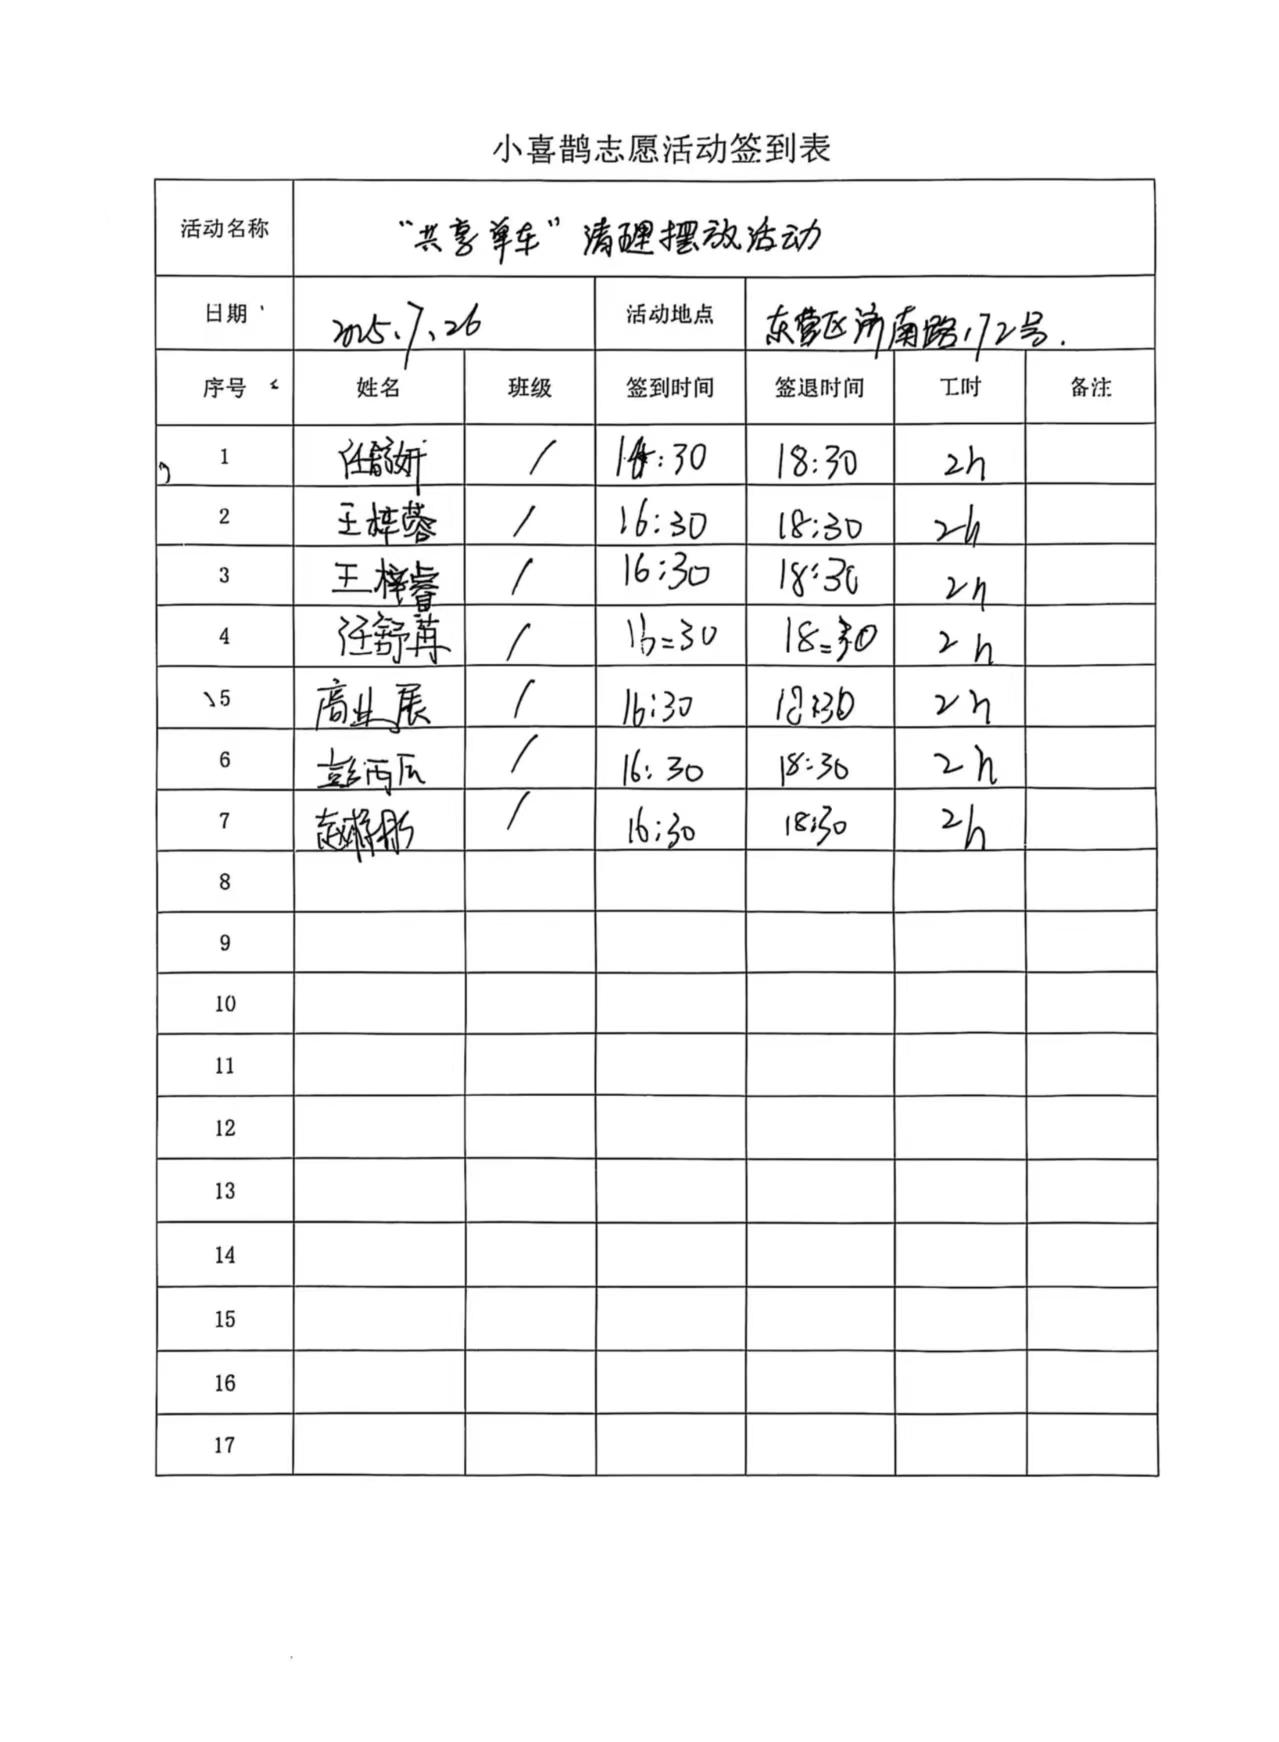 小喜鹊志愿活动签到表
活动名称 “共享单车”清理摆放活动
日期 2025.7.26 活动地点 东营区济南路172号.
序号 姓名 班级 签到时间 签退时间 工时 备注
1 任舒妍 / :30 18:30 2h
2 王梓蓉 / 16:30 18:30 2h
3 王梓睿 / 16:30 18:30 2h
4 任舒苒 / 16:30 18:30 2h
5 商业展 / 16:30 18:30 2h
6 / 16:30 18:30 2h
7 / 16:30 18:30 2h
8
9
10
11
12
13
14
15
16
17